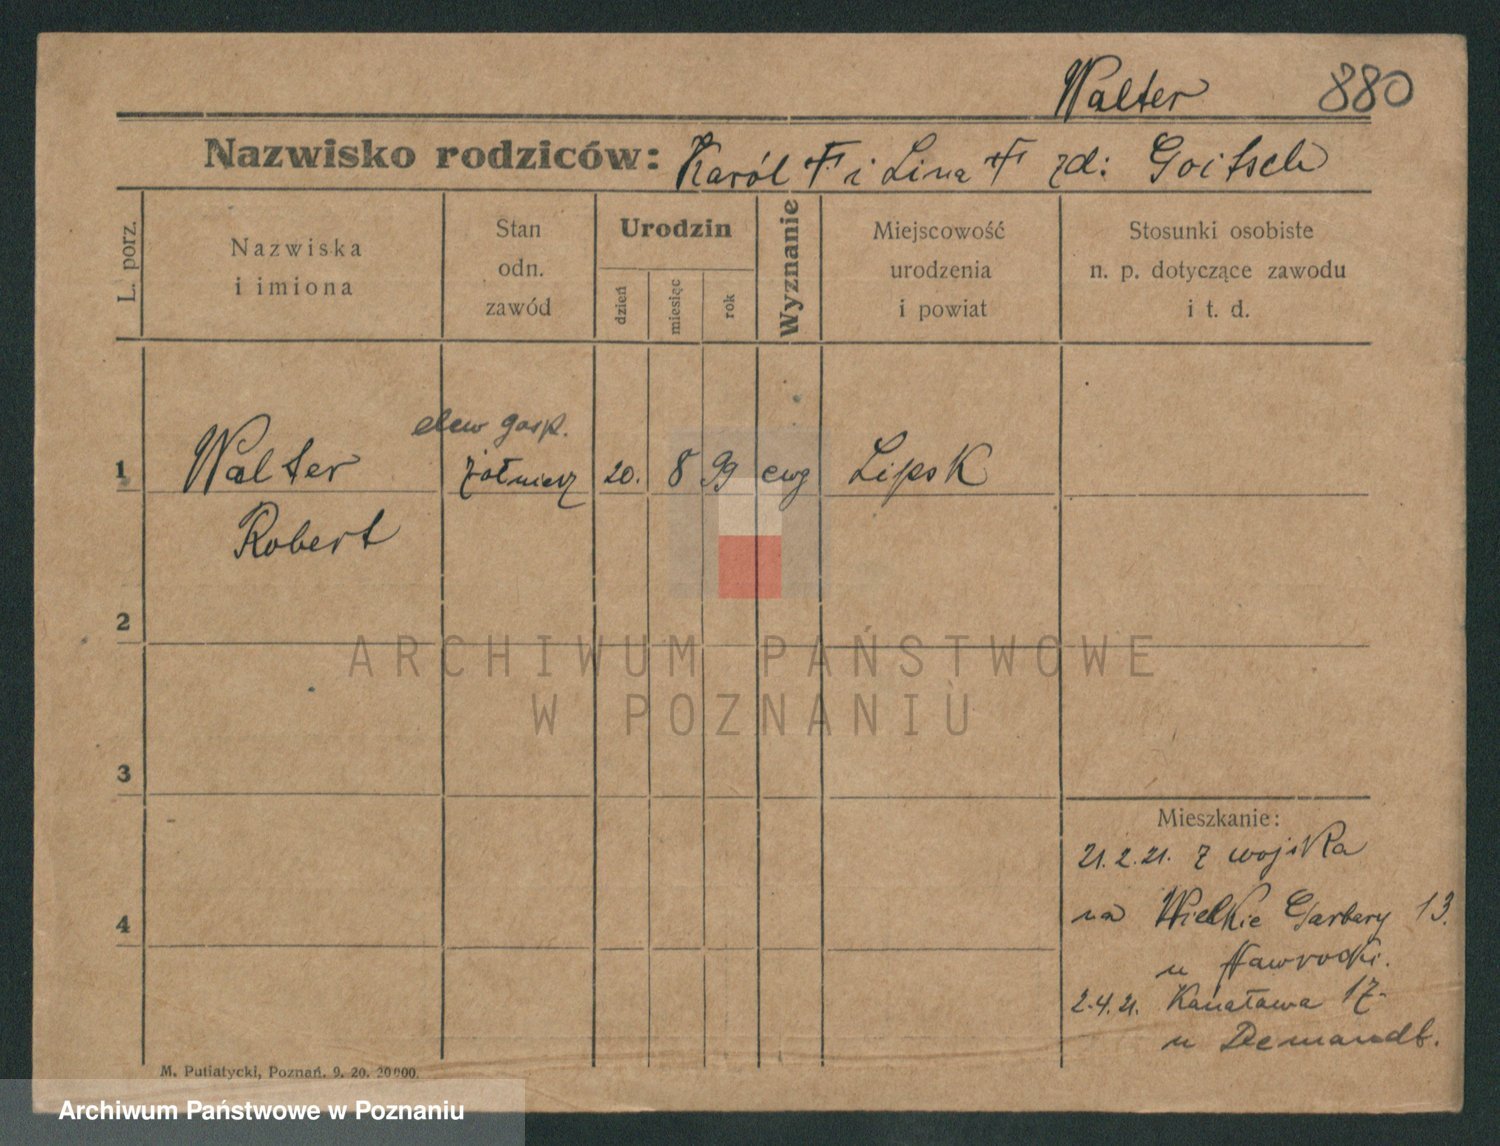 Walter 880
Nazwisko rodziców: Karól † i Lina † zd: Goitsch
L. porz.
Nazwiska
i imiona
Stan
odn.
zawód
Urodzin
dzień
miesiąc
rok
Wyznanie
Miejscowość
urodzenia
i powiat
Stosunki osobiste
n. p. dotyczące zawodu
i t. d.
elew gosp.
1 Walter żołnierz 20. 8 99 ewg Lipsk
Robert
2
3
4
Mieszkanie:
21.2.21. z wojska
na Wielkie Garbary 13.
u Nawrocki.
2.4.21. Kanałowa 17.
u Demandt.
M. Putiatycki, Poznań. 9. 20. 20000.
ARCHIWUM PAŃSTWOWE
W POZNANIU
Archiwum Państwowe w Poznaniu